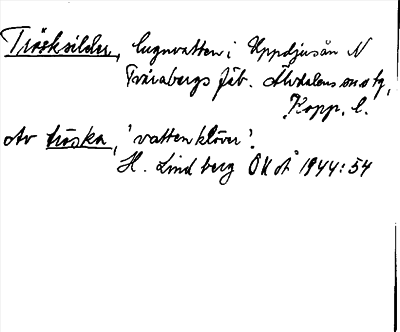 Tröskselder, lugnvatten i Uppdjusån N
Tväråbergs fäb. Älvdalens sn o tg,
Kopp. l.
Av tröska, 'vattenklöver'.
H. Lindberg OUÅ 1944:54